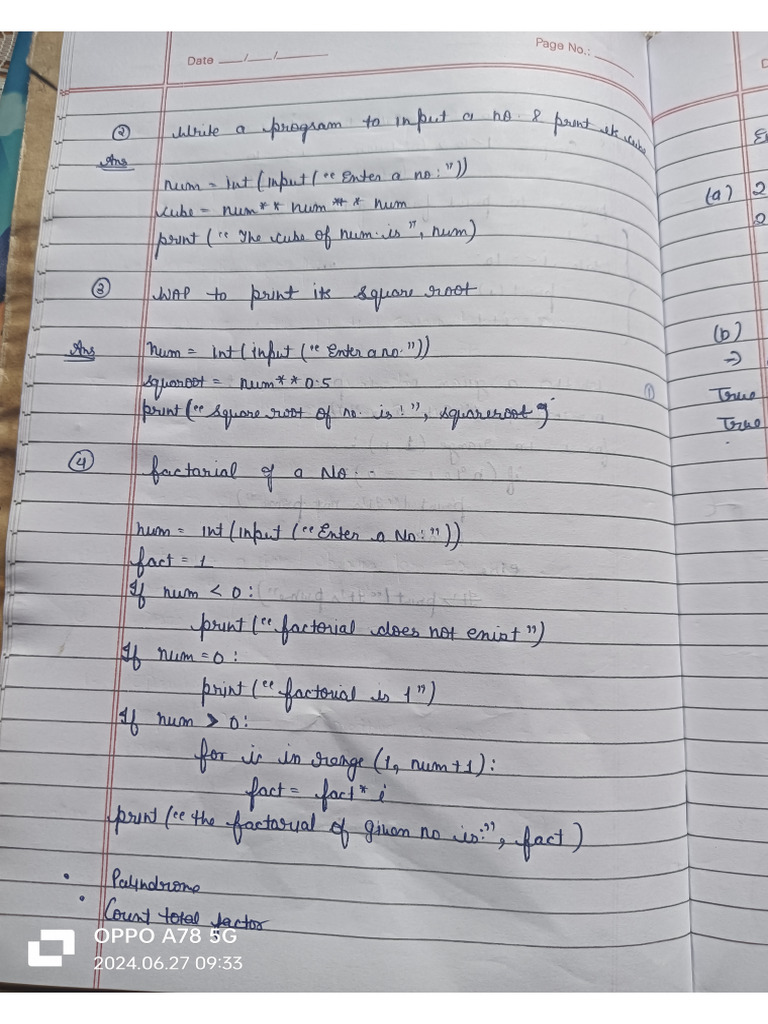 Date __/__/____
Page No.: ____
② Write a program to input a no. & print its cube
Ans
num = int(input("Enter a no:"))
cube = num** num** * num
print("The cube of num. is", num)
③ WAP to print its square root
Ans num = int(input("Enter a no."))
squaroot = num**0.5
print("square root of no. is!", squareroot)
④ factarial of a No:-
num = int(input("Enter a No:"))
fact = 1
If num < 0:
print("factorial does not exist")
If num=0:
print("factorial is 1")
If num > 0:
for i in range(1, num+1):
fact = fact* i
print("the factarial of given no is:", fact)
• Palindrome
• Count total factor
(a) 2
2
(b)
→
True
True
OPPO A78 5G
2024.06.27 09:33